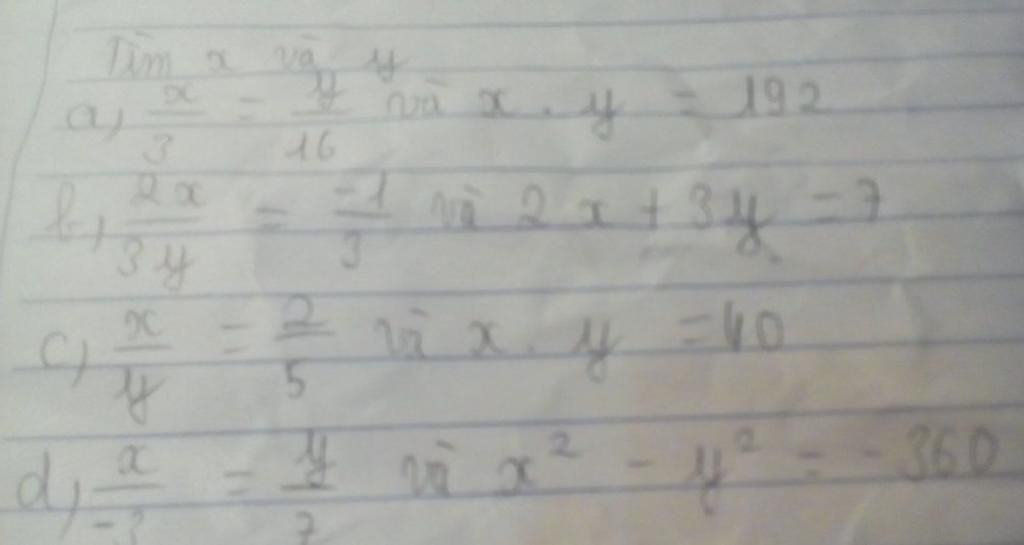 Tìm x và y
a, x/3 = y/16 và x . y = 192
b, 2x/3y = -1/3 và 2x + 3y = 7
c, x/y = 2/5 và x . y = 40
d, x/-3 = y/7 và x² - y² = -360